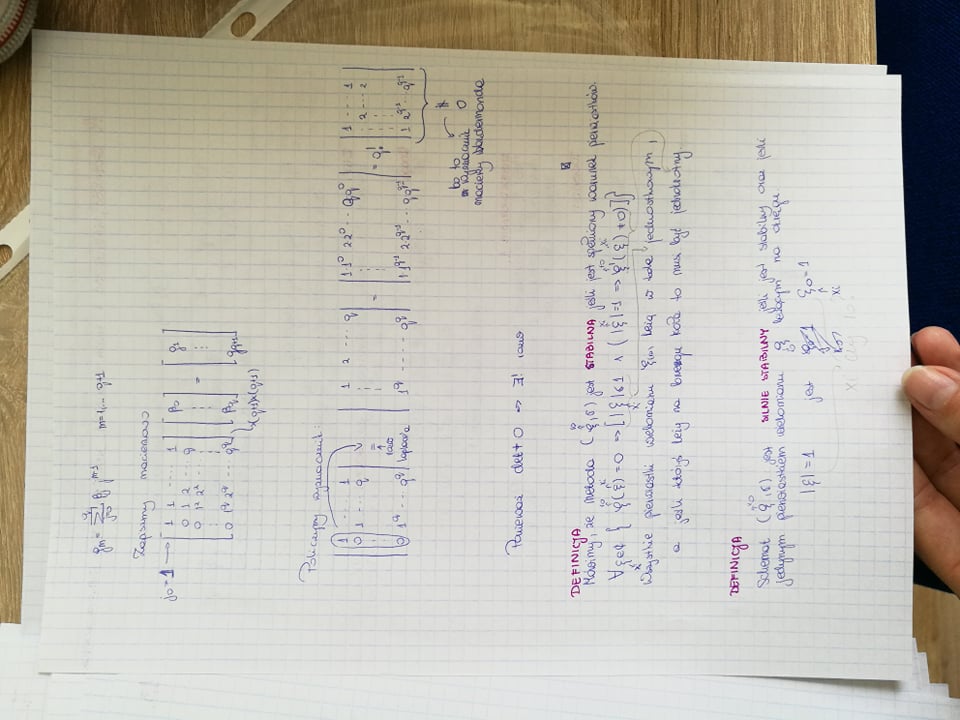 gm = q∑j=0 βj j^m-1 m=1,... q+1
Zapiszmy macierzowo
j0 = 1 → [1 1 ... 1 [β0 [g1
0 1 2 ... q
0 1² 2² ... =
0 1^q 2^q ... q^q] βq] gq+1]
(q+1)x(q+1)
Policzmy wyznacznik:
|1 ... 1| |1 2 ... q| |1·1^0 2·2^0 ... q·q^0| |1 ... 1|
|0 1 ... q| = = = q! 2 ... 2
|0 1^q ... q^q| |1^q ... q^q| |1·1^q-1 2·2^q-1 ... q·q^q-1| |1 2^q-1 ... q^q-1|
≠
bo to 0
wyznacznik
macierzy Vandermonda
Ponieważ det ≠ 0 => ∃!
DEFINICJA
Mówimy, że metoda (ϱ,δ) jest STABILNA jeśli jest spełniony warunek pierwiastków.
∀ξ∈ℂ { ϱ(ξ)=0 => [|ξ|≤1 ∧ (|ξ|=1 => ϱ'(ξ)≠0)]}
xi
Wszystkie pierwiastki wielomianu leżą w kole jednostkowym,
a jeśli któryś leży na brzegu koła to musi być jednokrotny.
DEFINICJA
Schemat (ϱ,δ) jest SILNIE STABILNY jeśli jest stabilny oraz jeśli
jedynym pierwiastkiem wielomianu ϱ leżącym na okręgu
|ξ|=1 jest ξ0=1
xi
xi czy ro?